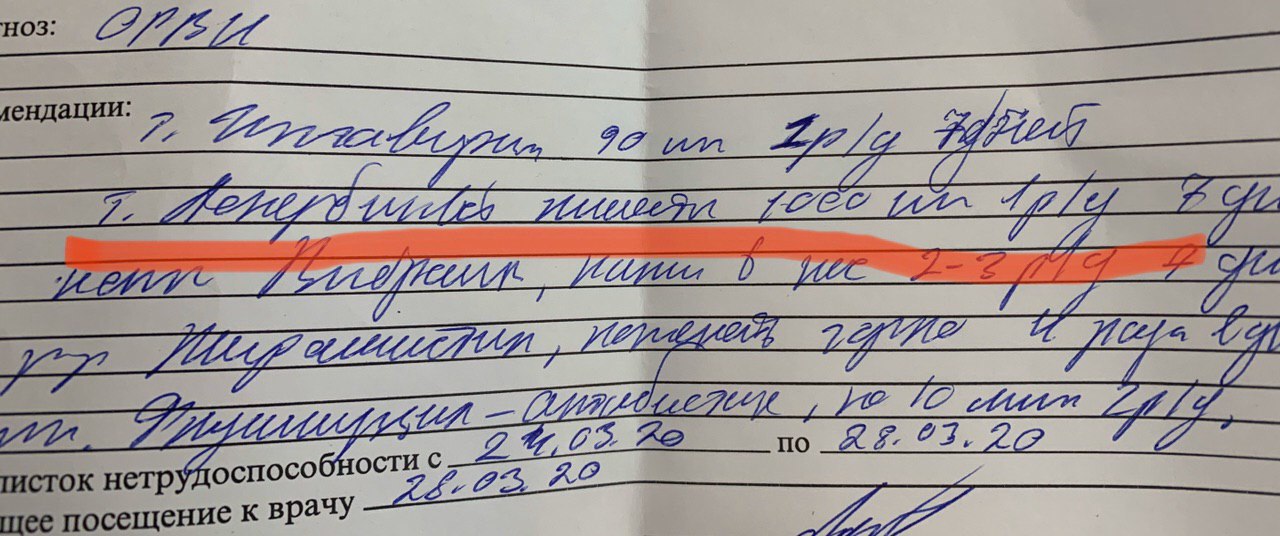 гноз: ОРВИ
мендации:
т. Ингавирин 90 мг 1 р/д 7 дней
т. аскорбин 1000 мг 1 р/д 7 дн
капли в нос 2-3 р/д 7 дн
р-р Мирамистин, полоскать горло 4 раза в д
Флуимуцил - антибиотик, по 10 мин 2 р/д.
листок нетрудоспособности с 24.03.20 по 28.03.20
щее посещение к врачу 28.03.20